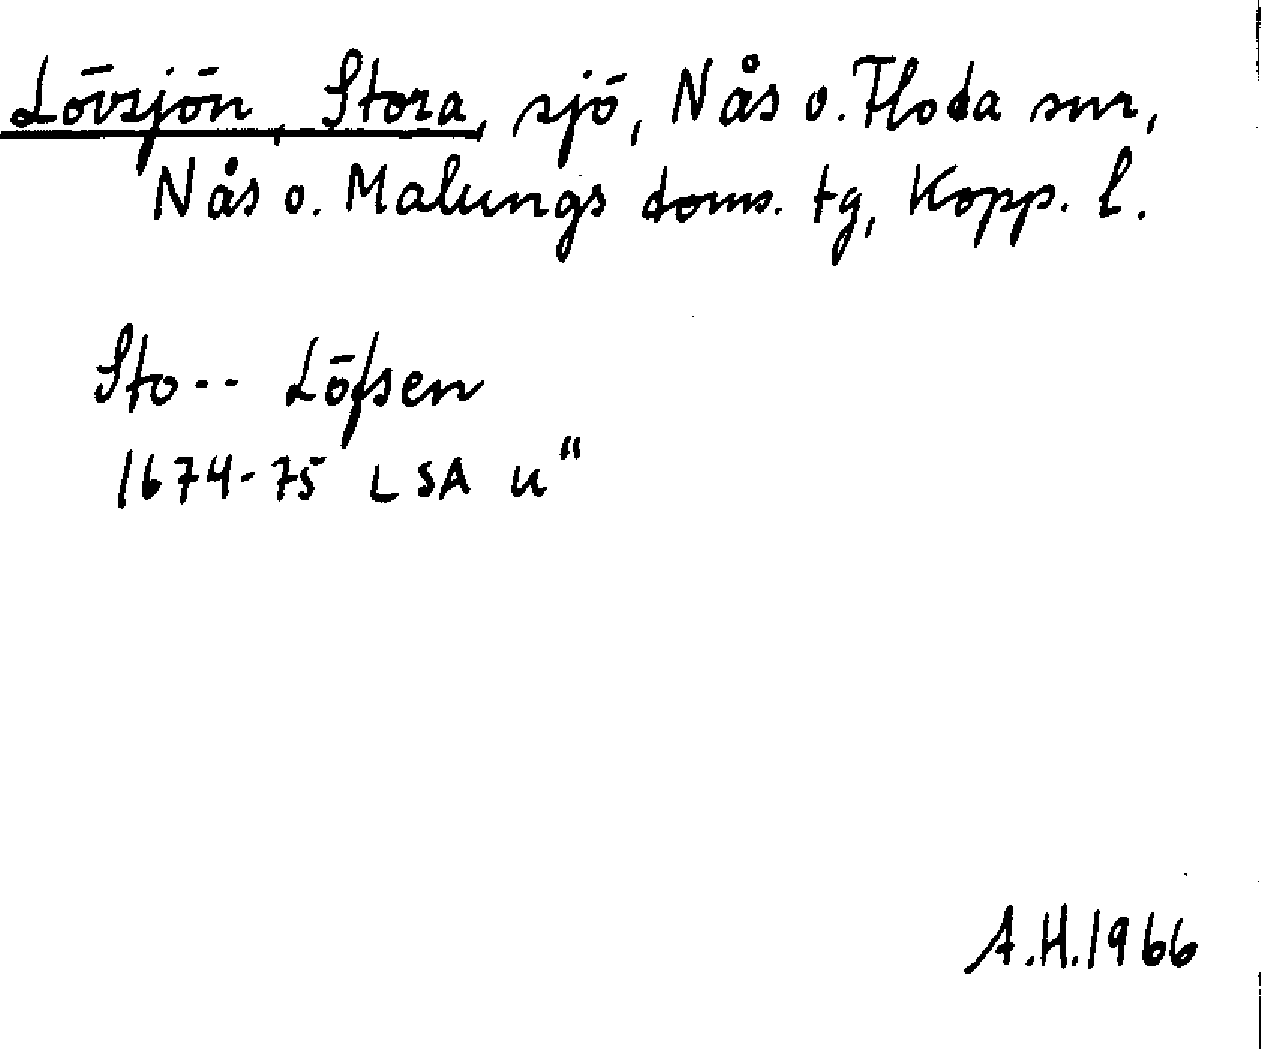 Lövsjön, Stora, sjö, Nås o. Floda snr,
Nås o. Malungs doms. tg, Kopp. l.
Sto-- Löfsen
1674-75 LSA u"
A.H.1966